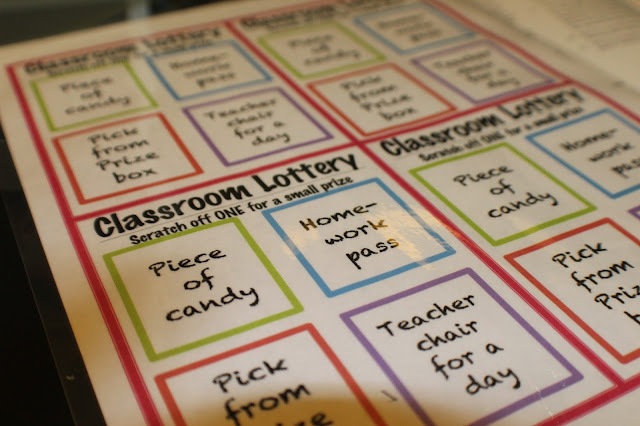 Classroom Lottery
Scratch off ONE for a small prize
Piece
of
candy
Home-
work
pass
Pick
from
Prize
box
Teacher
chair
for a
day
Classroom Lottery
Piece
of
candy
Home-
work
pass
Pick
from
Prize
box
Teacher
chair
for a
day
Classroom Lottery
Scratch off ONE for a small prize
Piece
of
candy
Home-
work
pass
Pick
from
Prize
Teacher
chair
for a
day
Classroom Lottery
Scratch off ONE for a small prize
Piece
of
candy
Home-
work
pass
Pick
from